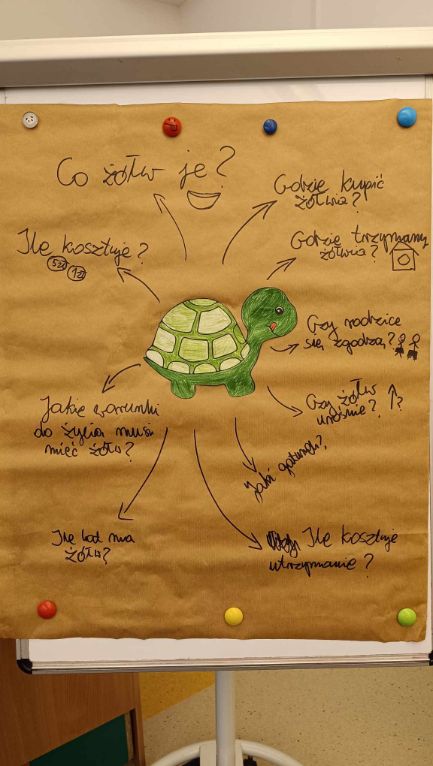 Co żółw je?
Gdzie kupić
żółwia?
Ile kosztuje?
5zł 1zł
Gdzie trzymamy
żółwia?
Czy rodzice
się zgodzą?
Jakie warunki
do życia musi
mieć żółw?
Czy żółw
urośnie? ?
Jaki gatunek?
Ile lat ma
żółw?
Ile kosztuje
utrzymanie?